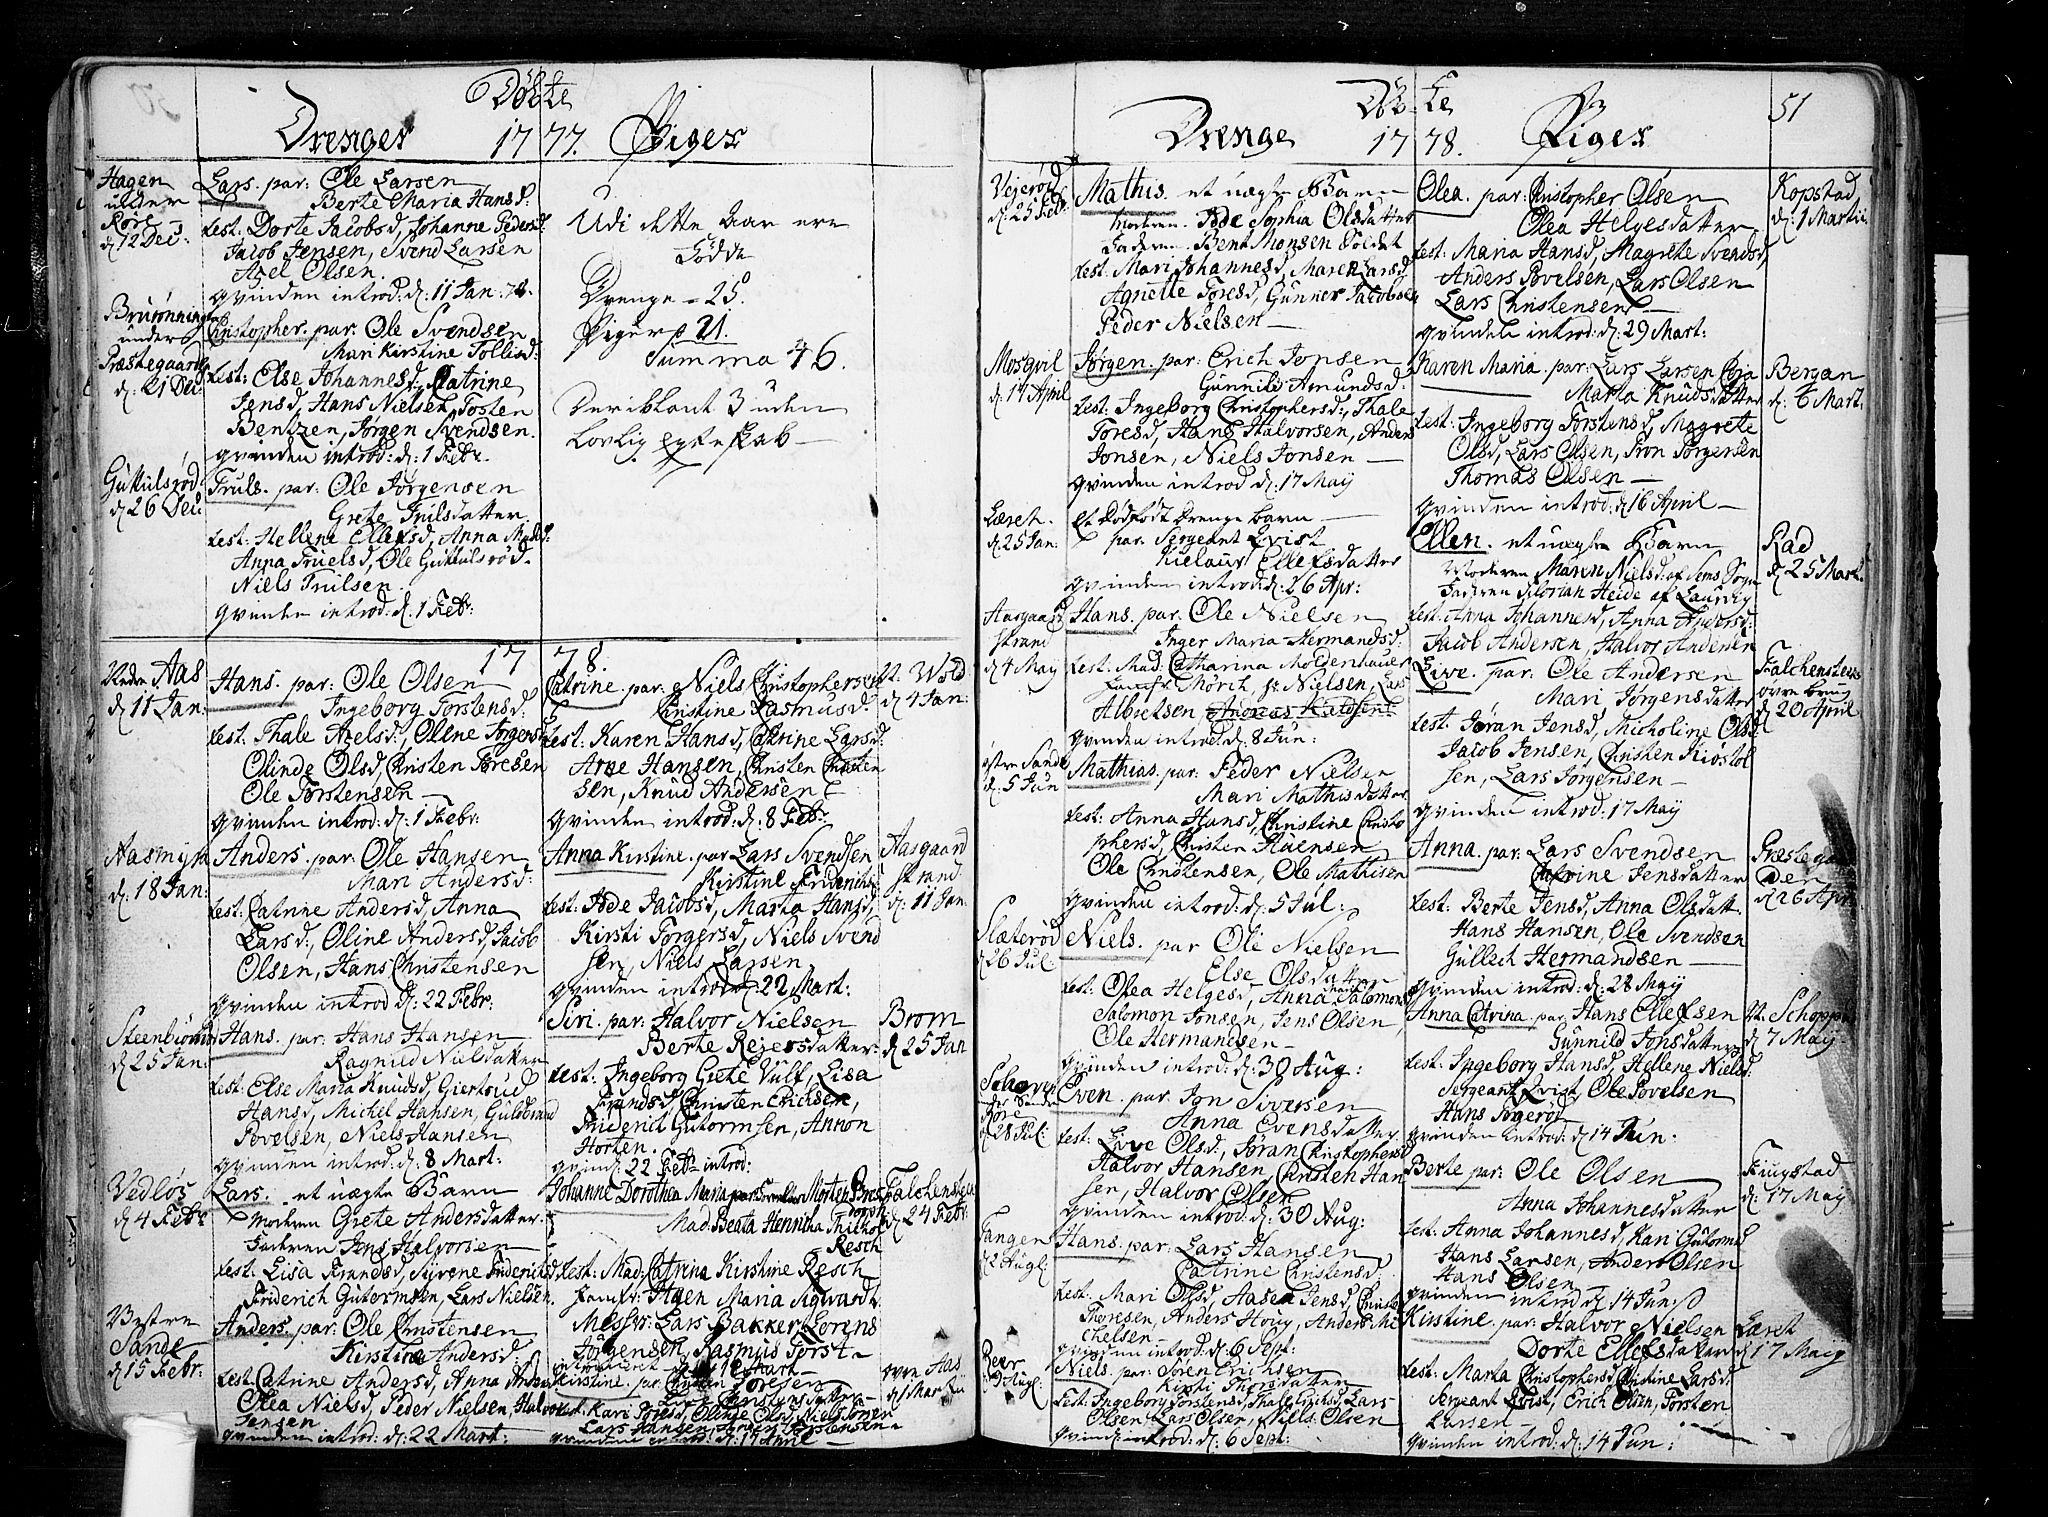 Döbte
Drenger 1777. Piger
Hagen
under
Röre
d. 12 Dec:
Lars. par: Ole Larsen
Berte Maria Hansd:
test: Dorte Jacobsd, Johanne Pedersd.
Jacob Jensen, Svend Larsen
Axel Olsen.
qvinden introd: d: 11 Jan: 78.
under
Præstegaarden
d. 21 Dec:
Christopher. par: Ole Svendsen
Mari Kirstine Tollisd:
test: Else Johannesd, Catrine
Jensd, Hans Nielsen, Tosten
Bentzen, Jørgen Svendsen.
qvinden introd: d: 1 Febr.
Gukilsrød
d 26 Dec
Truls. par: Ole Jørgensen
Grete Trulsdatter
test: Hellene Ellefsd, Anna
Anna Truelsd, Ole Gukkilsrød.
Niels Trulsen.
qvinden introd: d. 1 Febr:
Udi dette Aar ere
Födde
Drenge = 25.
Piger = 21.
Summa 46.
Deriblant 3 uden
lovlig egteskab —
1778.
Nedre Aas
d 11 Jan:
Hans. par: Ole Olsen
Ingeborg Torstensd:
test: Thale Axelsd:, Ollene Jørgensd
Olinde Olsd, Christen Toresen
Ole Torstensen —
qvinden introd: d: 1 Febr:
Aasmyhr
d: 18 Jan:
Anders. par: Ole Hansen
Mari Andersd:
test: Catrine Andersd, Anna
Larsd:, Oline Andersd, Jacob
Olsen, Hans Christensen
qvinden introd d: 22 Febr:
d 25 Jan:
Hans. par: Hans Hansen
Ragnild Nielsdatter
test: Else Maria Knudsd, Giertrued
Hansd, Michel Hansen, Guldbrand
Povelsen, Niels Hansen
qvinden introd: d: 8 Mart:
Vedløs
d 4 Febr
Lars. et uægte Barn
Moderen Grete Andersdatter.
Faderen Jens Halvorsen
test: Lisa Frandsd, Syvene Friderichsd
Friderich Gutormsen, Lars Nielsen.
Vestre
Sande
d 15 Febr:
Anders. par: Ole Christensen
Kirstine Andersd:
test: Catrine Andersd, Anna
Olea Nielsd, Peder Nielsen, Halvor
Jensen
qvinden introd: d: 22 Mart:
Catrine. par: Niels Christophersen
Kirstine Rasmusd.
test: Karen Hansd, Catrine Larsd:
Arne Hansen, Christen Christen
sen, Knud Andersen
qvinden introd: d: 8 Febr
Wold
d 4 Jan:
Anna Kirstine. par Lars Svendsen
Kirstine Friderichsd
test: Jode Jacobsd, Marta Hansd,
Kirsti Torgersd, Niels Svend
sen, Niels Larsen
qvinden introd: 22 Mart:
Aasgaard
strand
d: 11 Jan:
Siri. par: Halvor Nielsen
Berte Reiersdatter
test: Ingeborg Grete Vulf, Lisa
Frandsd, Christen Erichsen,
Friderich Gutormsen, Annon
Horten.
qvind: 22 Febr introd:
Brom
d 25 Jan
Johanne Dorothea Maria par: Morten
Mad Beata Henricha
Resch
test: Mad: Catrina Kirstine Resch
Jomfr: Maria
Messrs: Lars Bakker, Lorens
Jörgensen, Rasmus Torst
introduceret
d 24 Febr:
Kirstine. par: Christen Toresen
Christensdatter
test: Kari Toresd, Olinde Olsd, Niels Jonsen
Lars Hansen, Torstensen
qvinden introd: d: 17 April —
øvre Aas
d 1 Martii
Döbte
51
Drenge 1778. Piger
d. 25 Febr
Mathis. et uægte Barn
Moderen. Jode Sophia Olsdatter
Faderen. Bent Monsen Soldat
test: Mari Johannesd, Maren Larsd
Agnette Toresd, Gunner Jacobsen
Peder Nielsen —
Mosqvil
d: 17 April
Jørgen. par: Erich Jonsen
Gunnild Amundsd:
test: Ingeborg Christophersd:, Thale
Toresd, Hans Halvorsen, Anders
Jonsen, Niels Jonsen —
qvinden introd d: 17 May
Læret.
d: 25 Jan:
et Dødfødt Drenge barn —
par. Sergeant Qvist
Ellefsdatter
qvinden introd: d. 26 Apr:
Aasgaard
strand
d 4 May
Hans. par: Ole Nielsen
Inger Maria Hermandsd:
test: Mad: Catharina Moldenhauer
Jomfr: Mörch, Nielsen, Lars
Albretsen,
qvinden introd d: 8 Jun:
østre Sande
d: 5 Jun
Mathias. par: Peder Nielsen
Mari Mathisdatter
test: Anna Hansd, Christine Christo
phersd, Christen
Ole Christensen, Ole Mathisen
qvinden introd: d: 5 Jul:
Slæterød
d 26 Jul:
Niels. par Ole Nielsen
Else Olsdatter
test: Olea Helgesd, Anna Salomonsd
Salomon Jonsen, Jens Olsen
Ole Hermandsen —
qvinden introd: d: 30 Aug:
Röre
d 28 Jul:
Even. par: Jon Siversen
Anna Evensdatter
test: Live Olsd, Jøran Christophersd
Halvor Hansen, Christen Han
sen, Halvor Olsen
qvinden introd: d: 30 Aug:
Tangen
d 2 Aug:
Hans. par: Lars Hansen
Catrine Christensd
test: Mari Olsd, Aase Jensd, Christen
Thoresen, Anders Houg, Anders Mi
chelsen —
qvinden introd: d: 6 Sept:
Niels. par: Søren Erichsen
Kirsti Thorsdatter
test: Ingeborg Torstensd, Thale Erichsd, Lars
Olsen, Lars Olsen, Niels Olsen
qvind: introd: d: 6 Sept:
Olea. par: Christopher Olsen
Olea Helgesdatter
test: Maria Hansd, Magrete Svendsd,
Anders Povelsen, Lars Olsen
Lars Christensen —
qvinden introd: d: 29 Mart:
Kopstad
d. 1 Martii
Karen Maria. par: Lars Larsen
Marta Knudsdatter
test: Ingeborg Torstensd, Magrete
Olsd, Lars Olsen, Iron Torgersen
Thomas Olsen —
qvinden introd: d 16 April —
Bergan
d: 6 Mart.
Ellen. et uægte Barn
Moderen Maren Nielsd: af Sems Sogn
Faderen Florian Heide af Laurvig
test: Anna Johannesd, Anna Andersd:
Jacob Andersen, Halvor Andersen
Rød
d 25 Mart.
Live. par: Ole Andersen
Mari Jørgensdatter
test: Jøran Jensd, Micholine Olsd
Jacob Jensen, Christen Kiøstol
sen, Lars Jørgensen —
qvinden introd: 17 May
Falchensteen
øvre brug
d 20 April
Anna. par: Lars Svendsen
Catrine Jensdatter
test: Berte Jensd, Anna Olsdatt.
Hans Hansen, Ole Svendsen
Gullech Hermandsen —
qvinden introd: d: 28 May
Præstegaar
den
d 26 Apr:
Anna Catrina. par: Hans Ellefsen
Gunnild Jonsdatter
test: Ingeborg Hansd, Hellene Nielsd:
Sergeant Qvist, Ole Povelsen
Hans
qvinden introd: d 14 Jun:
d 7 May
Berte par: Ole Olsen
Anna Johannesdatter
test: Anna Johannesd, Kari Gutormsd
Hans Larsen, Anders Olsen
Hans Olsen —
qvinden introd d 14 Jun:
Fingstad
d: 17 May
Kirstine. par: Halvor Nielsen
Dorte Ellefsdatter
test: Marta Christophersd, Christine Larsd:
Sergeant Qvist, Erich Olsen, Torsten
Larsen —
qvinden introd: d. 14 Jun:
Læret
d 17 May